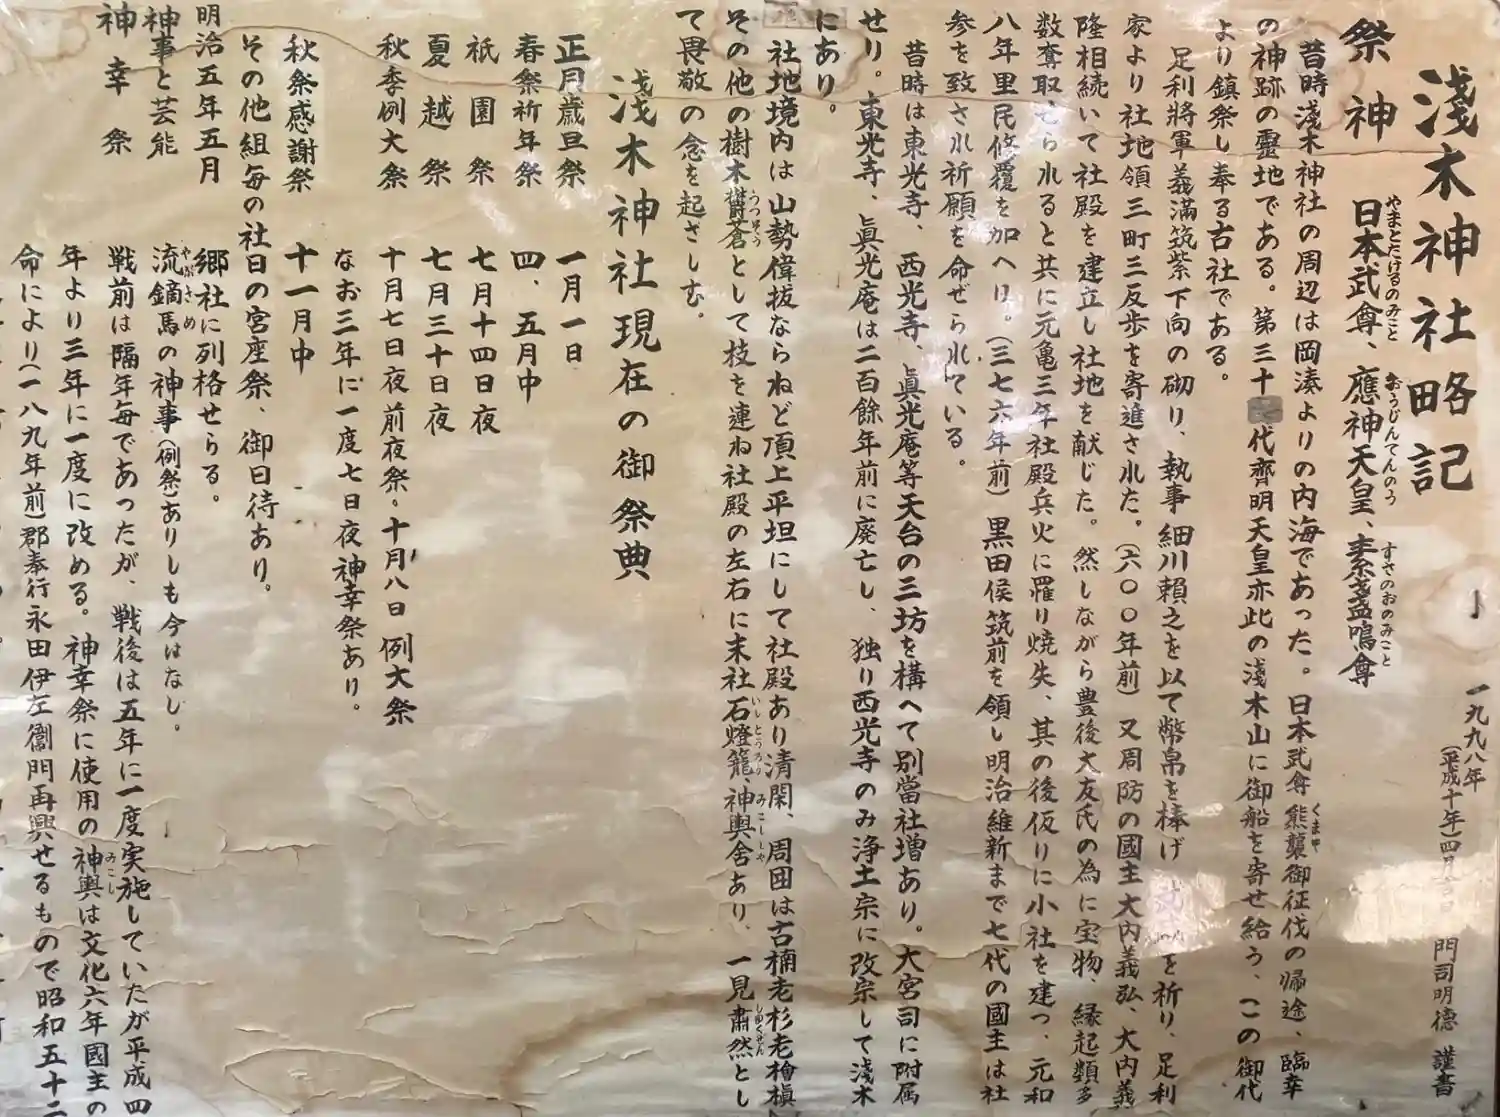 淺木神社略記
一九九八年
(平成十年)四月 日 門司明徳 謹書
祭神 日本武尊、應神天皇、素盞嗚尊
やまとたけるのみこと おうじんてんのう すさのおのみこと
昔時淺木神社の周辺は岡湊よりの内海であった。日本武尊熊襲御征伐の帰途、臨幸
くまそ
の神跡の靈地である。第三十 代齊明天皇亦此の淺木山に御船を寄せ給う、この御代
より鎮祭し奉る古社である。
足利將軍義滿筑紫下向の砌り、執事細川頼之を以て幣帛を棒げ を祈り、足利
家より社地領三町三反歩を寄進された。(六〇〇年前)又周防の國主大内義弘、大内義
隆相続いて社殿を建立し社地を献じた。然しながら豊後大友氏の為に宝物、縁起類多
数奪取せられると共に元亀三年社殿兵火に罹り焼失、其の後仮りに小社を建つ、元和
八年里民修覆を加へり。(三七六年前)黒田侯筑前を領し明治維新まで七代の國主は社
参を致され祈願を命ぜられている。
昔時は東光寺、西光寺、眞光庵等天台の三坊を構へて別當社増あり。大宮司に附属
せり。東光寺、眞光庵は二百餘年前に廃亡し、独り西光寺のみ浄土宗に改宗して淺木
にあり。
社地境内は山勢偉抜ならねど頂上平坦にして社殿あり清閑、周囲は古楠老杉老檜槇
その他の樹木欝蒼として枝を連ね社殿の左右に末社石燈籠、神輿舎あり、一見肅然とし
うつそう いしとうろう みこしや しゆくぜん
て畏敬の念を起さしむ。
淺木神社現在の御祭典
正月歳旦祭 一月一日
春祭祈年祭 四、五月中
祇園祭 七月十四日夜
夏越祭 七月三十日夜
秋季例大祭 十月七日夜前夜祭。十月八日例大祭
なお三年に一度七日夜神幸祭あり。
秋祭感謝祭 十一月中
その他組毎の社日の宮座祭、御日待あり。
明治五年五月 郷社に列格せらる。
神事と芸能 流鏑馬の神事(例祭)ありしも今はなし。
やぶさめ
神幸祭 戦前は隔年毎であったが、戦後は五年に一度実施していたが平成四
年より三年に一度に改める。神幸祭に使用の神輿は文化六年國主の
みこし
命により(一八九年前)郡奉行永田伊左衞門再興せるもので昭和五十二